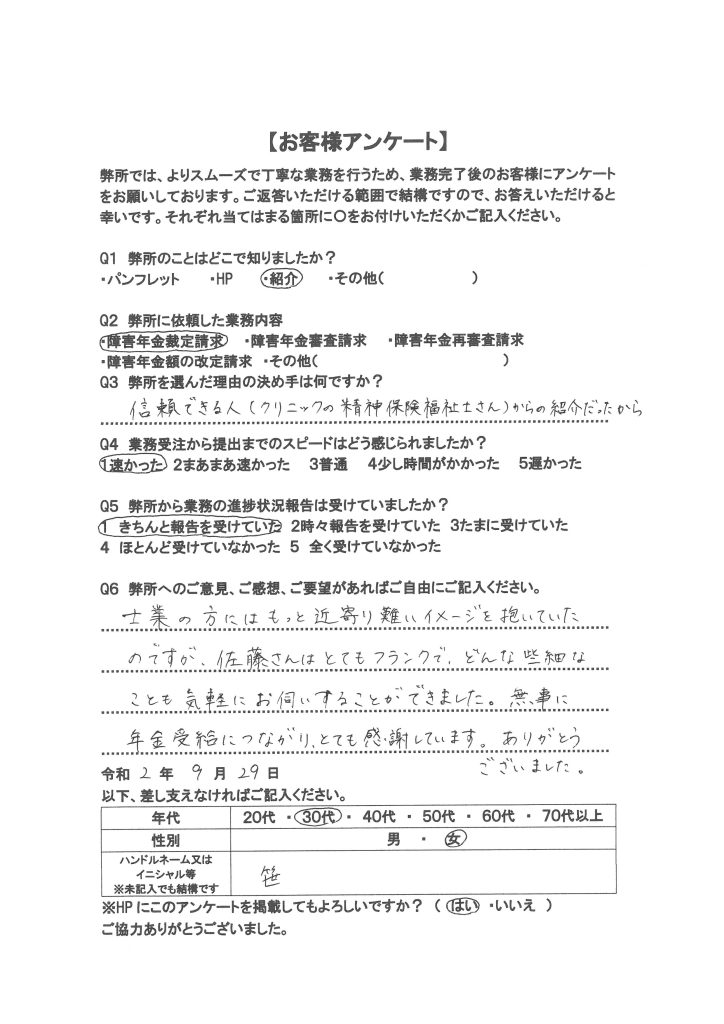 【お客様アンケート】
弊所では、よりスムーズで丁寧な業務を行うため、業務完了後のお客様にアンケート
をお願いしております。ご返答いただける範囲で結構ですので、お答えいただけると
幸いです。それぞれ当てはまる箇所に〇をお付けいただくかご記入ください。
Q1 弊所のことはどこで知りましたか？
・パンフレット ・HP ・紹介 ・その他( )
Q2 弊所に依頼した業務内容
・障害年金裁定請求 ・障害年金審査請求 ・障害年金再審査請求
・障害年金額の改定請求 ・その他( )
Q3 弊所を選んだ理由の決め手は何ですか？
信頼できる人（クリニックの精神保険福祉士さん）からの紹介だったから
Q4 業務受注から提出までのスピードはどう感じられましたか？
1速かった 2まあまあ速かった 3普通 4少し時間がかかった 5遅かった
Q5 弊所から業務の進捗状況報告は受けていましたか？
1 きちんと報告を受けていた 2時々報告を受けていた 3たまに受けていた
4 ほとんど受けていなかった 5 全く受けていなかった
Q6 弊所へのご意見、ご感想、ご要望があればご自由にご記入ください。
士業の方にはもっと近寄り難いイメージを抱いていた
のですが、佐藤さんはとてもフランクで、どんな些細な
ことも気軽にお伺いすることができました。無事に
年金受給につながり、とても感謝しています。ありがとう
ございました。
令和 2 年 9 月 29 日
以下、差し支えなければご記入ください。
年代 20代 ・ 30代 ・ 40代 ・ 50代 ・ 60代 ・ 70代以上
性別 男 ・ 女
ハンドルネーム又は
イニシャル等
※未記入でも結構です
笹
※HPにこのアンケートを掲載してもよろしいですか？ （ はい ・いいえ ）
ご協力ありがとうございました。